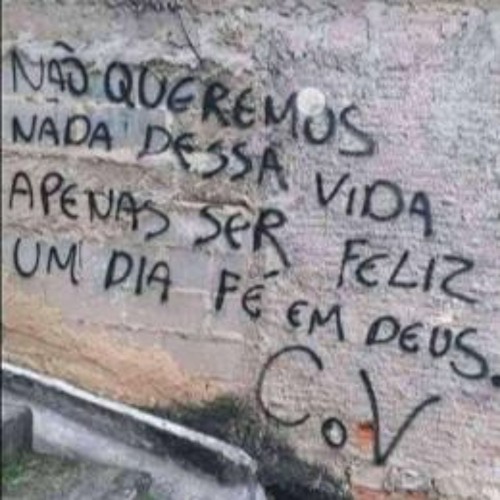 NÃO QUEREMOS
NADA DESSA VIDA
APENAS SER FELIZ
UM DIA FÉ EM DEUS.
C.V